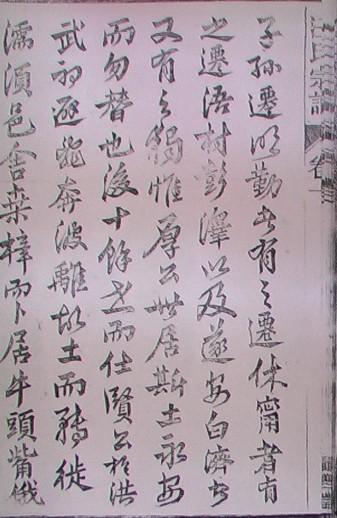 氏宗譜 卷
子孫遷勤者有之遷休甯者有
之遷浯村彭澤以及遂安白濟者
又有之獨惟厚公世居斯土永安
而勿替也後十餘世而仕賢公於洪
武初避亂奔波離故土而轉徙
濡須邑舍桑梓而卜居牛頭觜俄